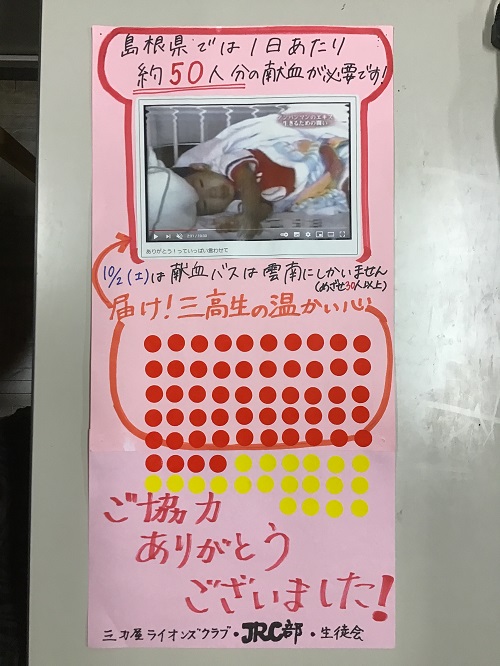 島根県では1日あたり
約50人分の献血が必要です!
アンパンマンのエキス
生きるための闘い
ありがとう!っていっぱい言わせて
10/2(土)は献血バスは雲南にしかいません
(めざせ30人以上)
届け!三高生の温かい心
ご協力
ありがとう
ございました!
三刀屋ライオンズクラブ・JRC部・生徒会